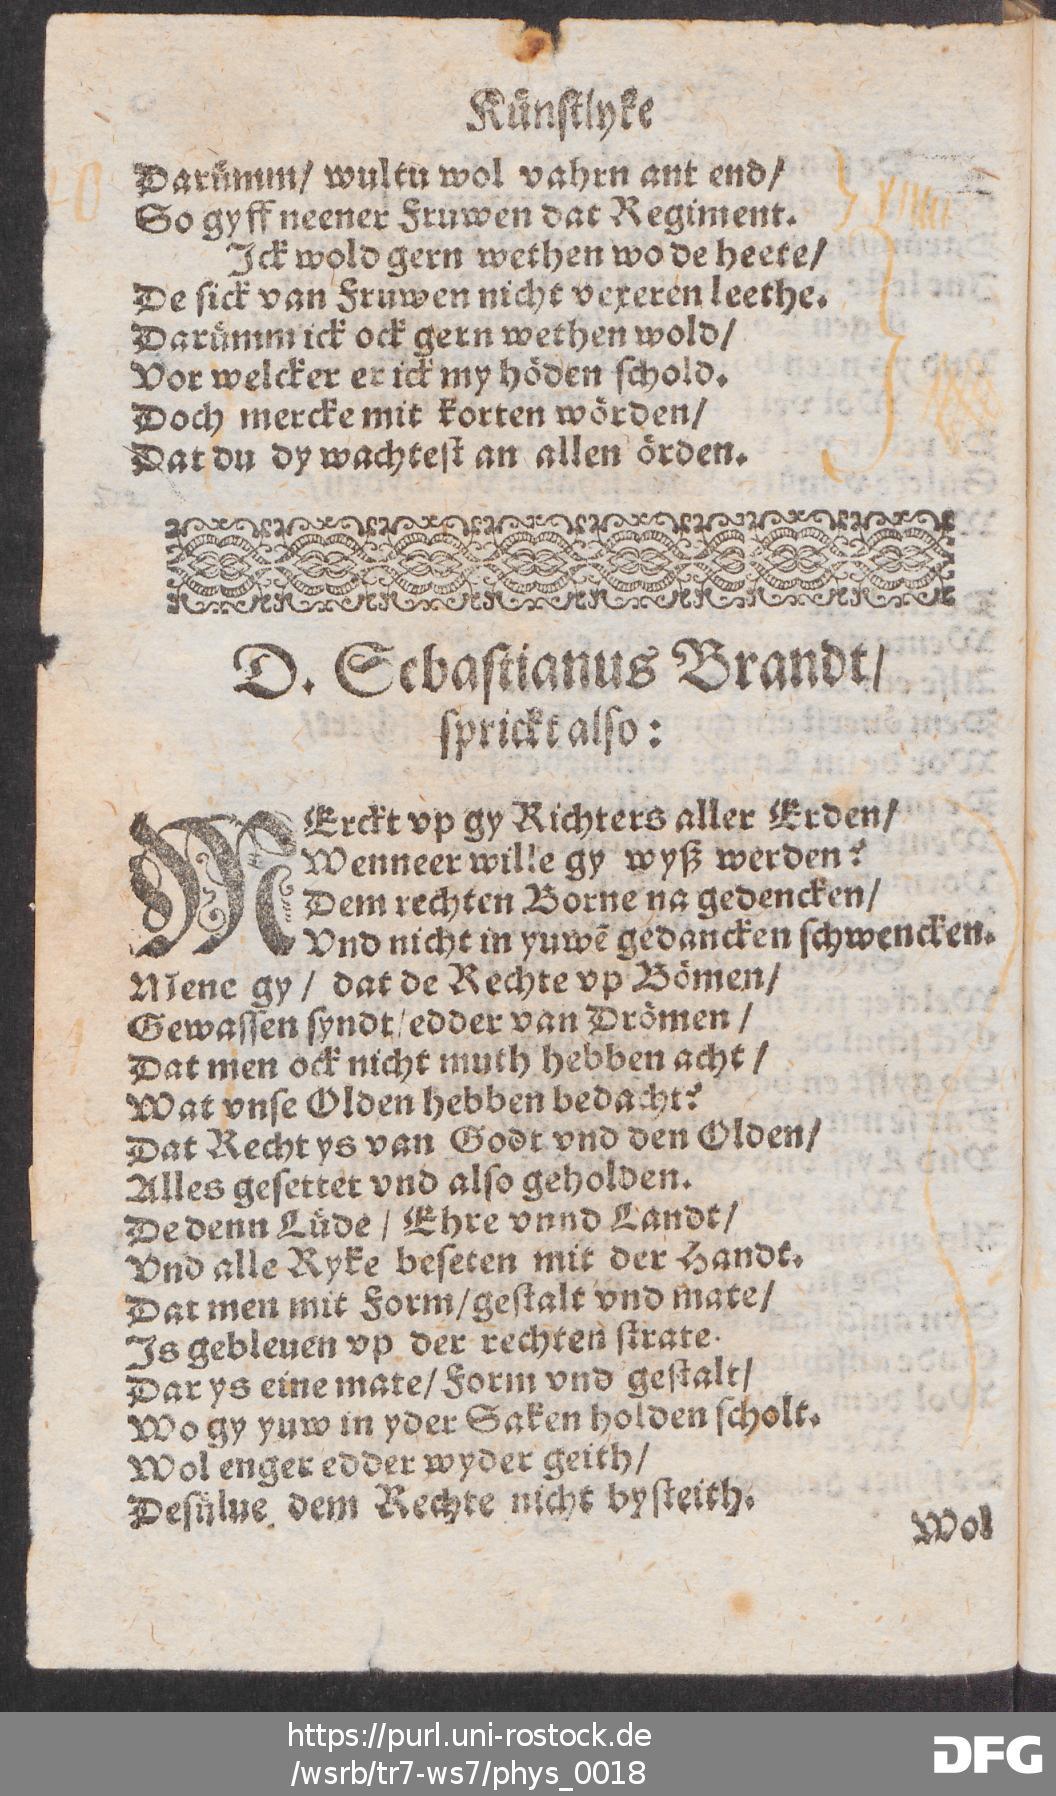 Künstlyke
Darümm/ wultu wol vahrn ant end/
So gyff neener Fruwen dat Regiment.
Ick wold gern wethen wo de heete/
De sick van Fruwen nicht vexeren leethe.
Darümm ick ock gern wethen wold/
Vor welcker er ick my höden schold.
Doch mercke mit korten wörden/
Dat du dy wachtest an allen örden.
D. Sebastianus Brandt/
sprickt also:
MErckt vp gy Richters aller Erden/
Wenneer wille gy wyß werden?
Dem rechten Borne na gedencken/
Vnd nicht in yuwē gedancken schwencken.
Mene gy/ dat de Rechte vp Bömen/
Gewassen syndt/ edder van Drömen/
Dat men ock nicht muth hebben acht/
Wat vnse Olden hebben bedacht?
Dat Recht ys van Godt vnd den Olden/
Alles gesettet vnd also geholden.
De denn Lüde/ Ehre vnnd Landt/
Vnd alle Ryke beseten mit der Handt.
Dat men mit Form/ gestalt vnd mate/
Is gebleuen vp der rechten strate.
Dar ys eine mate/ Form vnd gestalt/
Wo gy yuw in yder Saken holden scholt.
Wol enger edder wyder geith/
Desülue dem Rechte nicht bysteith.
Wol
https://purl.uni-rostock.de
/wsrb/tr7-ws7/phys_0018
DFG